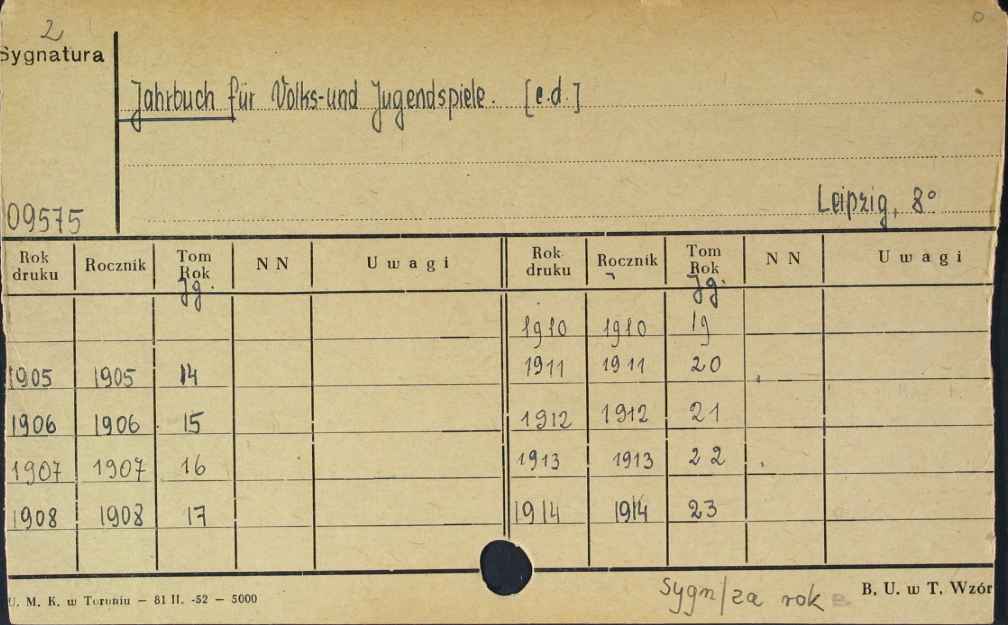 2
Sygnatura
Jahrbuch für Volks- und Jugendspiele. [e.d.]
09575
Leipzig, 8°
Rok druku Rocznik Tom Rok Jg. NN Uwagi Rok druku Rocznik Tom Rok Jg. NN Uwagi
1910 1910 19
1905 1905 14 1911 1911 20
1906 1906 15 1912 1912 21
1907 1907 16 1913 1913 22
1908 1908 17 1914 1914 23
U. M. K. w Toruniu — 81 II. -52 — 5000
Sygn/za rok
B. U. w T. Wzór